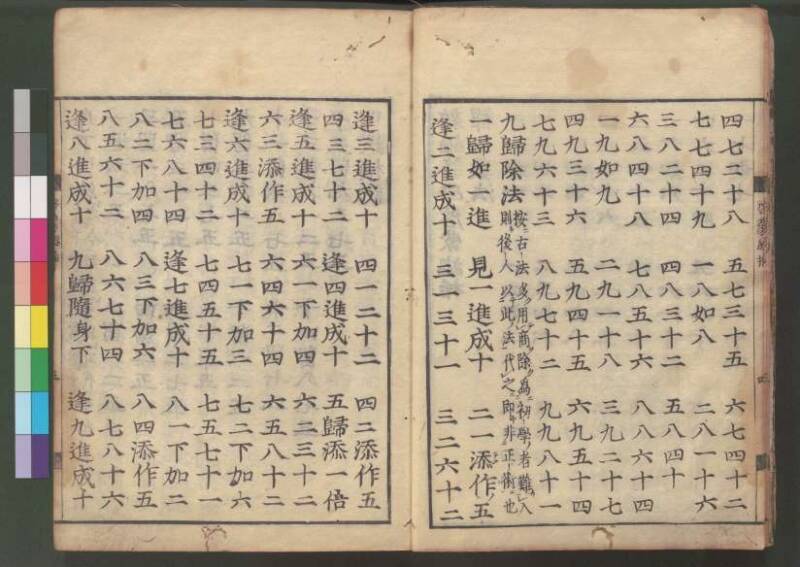 四七二十八　五七三十五　六七四十二
七七四十九　一八如八　二八一十六
三八二十四　四八三十二　五八四十
六八四十八　七八五十六　八八六十四
一九如九　二九一十八　三九二十七
四九三十六　五九四十五　六九五十四
七九六十三　八九七十二　九九八十一
九歸除法　按古法多用商除為初學者難入
則後人以此法代之即非正術也
一歸如一進　見一進成十　二一添作五
逢二進成十　三一三十一　三二六十二
逢三進成十　四一二十二　四二添作五
四三七十二　逢四進成十　五歸添一倍
逢五進成十　六一下加四　六二三十二
六三添作五　六四六十四　六五八十二
逢六進成十　七一下加三　七二下加六
七三四十二　七四五十五　七五七十一
七六八十四　逢七進成十　八一下加二
八二下加四　八三下加六　八四添作五
八五六十二　八六七十四　八七八十六
逢八進成十　九歸隨身下　逢九進成十